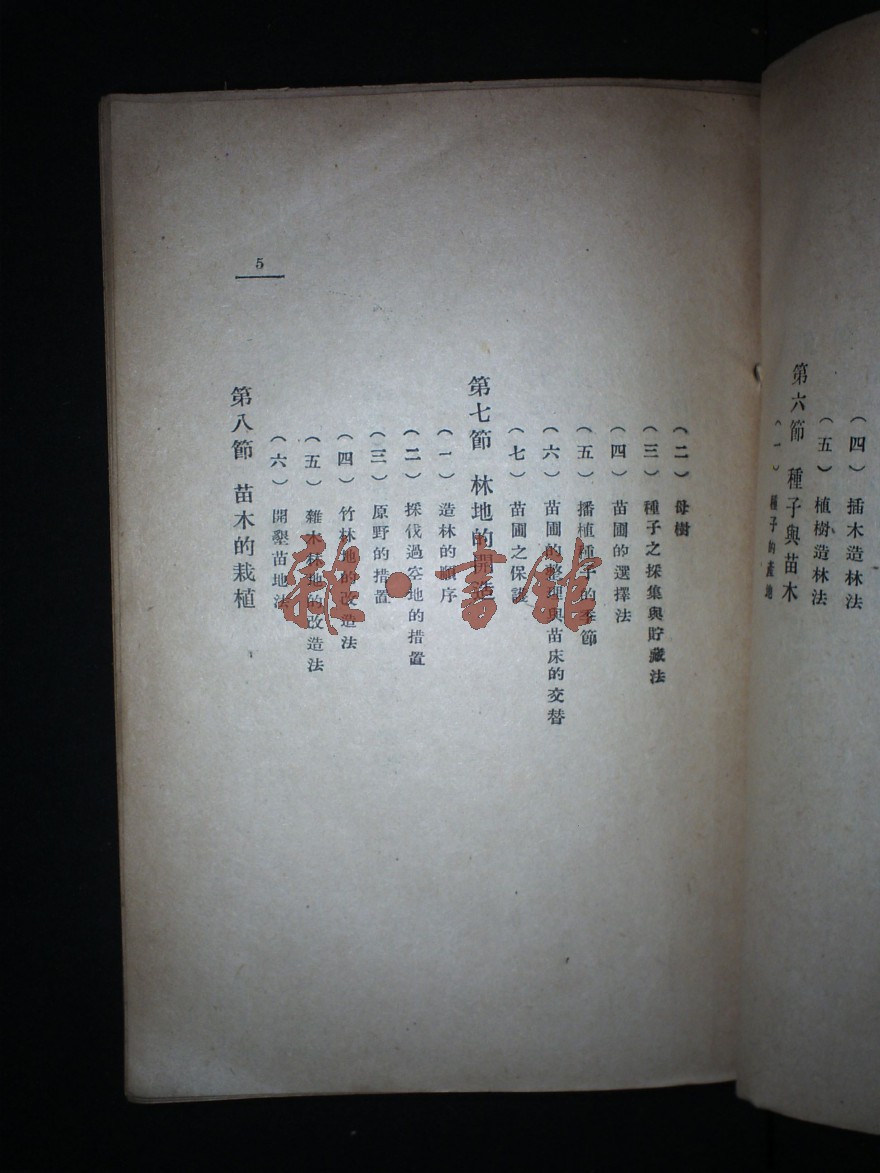 （四）插木造林法
（五）植樹造林法
第六節 種子與苗木
（一）種子的產地
（二）母樹
（三）種子之採集與貯藏法
（四）苗圃的選擇法
（五）播植種子的季節
（六）苗圃的整理與苗床的交替
（七）苗圃之保護
第七節 林地的開造
（一）造林的順序
（二）採伐過空地的措置
（三）原野的措置
（四）竹林地的改造法
（五）雜木林地的改造法
（六）開墾苗地法
第八節 苗木的栽植
5
雜·書館